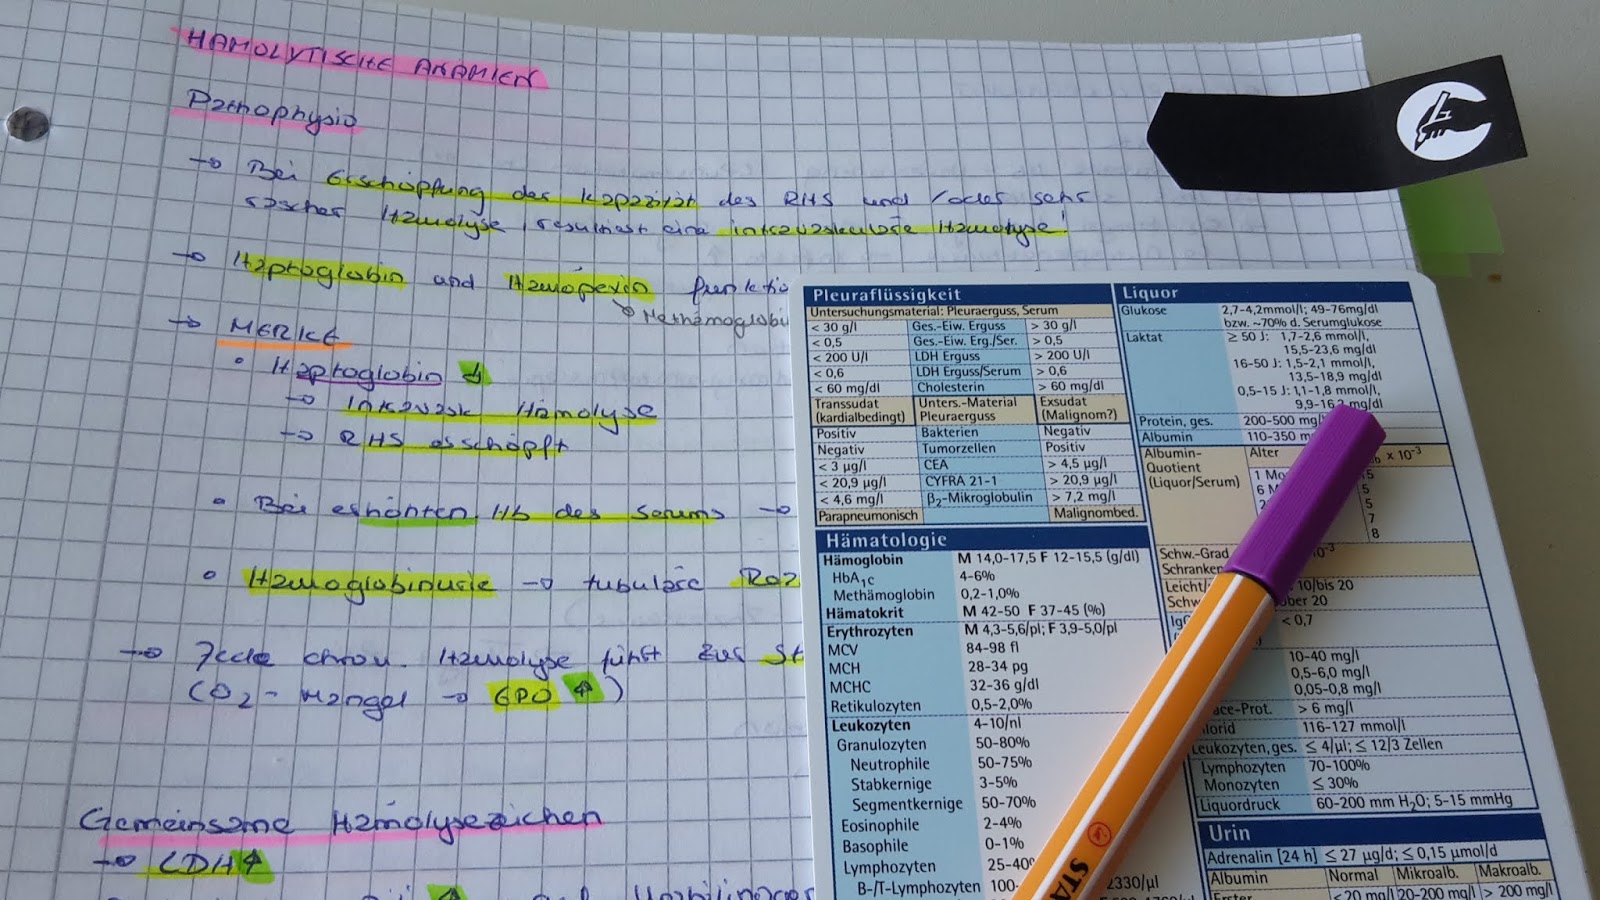 HÄMOLYTISCHE ANÄMIEN
Pathophysio
→ Bei Erschöpfung der Kapazität des RHS und/oder sehr
rascher Hämolyse, resultiert eine intravaskuläre Hämolyse!
→ Haptoglobin und Hämopexin funktio
Methämoglobi
→ MERKE
• Haptoglobin ↓
→ Intravask Hämolyse
→ RHS erschöpft
• Bei erhöhten Hb des Serums →
• Hämoglobinurie → tubuläre
→ Jede chron. Hämolyse führt zur
(O2-Mangel → EPO ↑)
Gemeinsame Hämolysezeichen
→ LDH ↑
Pleuraflüssigkeit
Untersuchungsmaterial: Pleuraerguss, Serum
< 30 g/l Ges.-Eiw. Erguss > 30 g/l
< 0,5 Ges.-Eiw. Erg./Ser. > 0,5
< 200 U/l LDH Erguss > 200 U/l
< 0,6 LDH Erguss/Serum > 0,6
< 60 mg/dl Cholesterin > 60 mg/dl
Transsudat Unters.-Material Exsudat
(kardialbedingt) Pleuraerguss (Malignom?)
Positiv Bakterien Negativ
Negativ Tumorzellen Positiv
< 3 µg/l CEA > 4,5 µg/l
< 20,9 µg/l CYFRA 21-1 > 20,9 µg/l
< 4,6 mg/l β2-Mikroglobulin > 7,2 mg/l
Parapneumonisch Malignombed.
Hämatologie
Hämoglobin M 14,0-17,5 F 12-15,5 (g/dl)
HbA1c 4-6%
Methämoglobin 0,2-1,0%
Hämatokrit M 42-50 F 37-45 (%)
Erythrozyten M 4,3-5,6/pl; F 3,9-5,0/pl
MCV 84-98 fl
MCH 28-34 pg
MCHC 32-36 g/dl
Retikulozyten 0,5-2,0%
Leukozyten 4-10/nl
Granulozyten 50-80%
Neutrophile 50-75%
Stabkernige 3-5%
Segmentkernige 50-70%
Eosinophile 2-4%
Basophile 0-1%
Lymphozyten 25-40%
B-/T-Lymphozyten 100- 2330/µl
Liquor
Glukose 2,7-4,2mmol/l; 49-76mg/dl
bzw. ~70% d. Serumglukose
Laktat ≥ 50 J: 1,7-2,6 mmol/l,
15,5-23,6 mg/dl
16-50 J: 1,5-2,1 mmol/l,
13,5-18,9 mg/dl
0,5-15 J: 1,1-1,8 mmol/l,
9,9-16,2 mg/dl
Protein, ges. 200-500 mg/
Albumin 110-350 m
Albumin- Alter x 10-3
Quotient 1 Mo 5
(Liquor/Serum) 6 M 5
2 5
7
8
Schw.-Grad -3
Schranken
Leicht/ 10/bis 20
Schw ber 20
IgG < 0,7
10-40 mg/l
0,5-6,0 mg/l
0,05-0,8 mg/l
ace-Prot. > 6 mg/l
lorid 116-127 mmol/l
Leukozyten, ges. ≤ 4/µl; ≤ 12/3 Zellen
Lymphozyten 70-100%
Monozyten ≤ 30%
Liquordruck 60-200 mm H2O; 5-15 mmHg
Urin
Adrenalin [24 h] ≤ 27 µg/d; ≤ 0,15 µmol/d
Albumin Normal Mikroalb. Makroalb.
Erster <20 mg/l 20-200 mg/l > 200 mg/l
STA